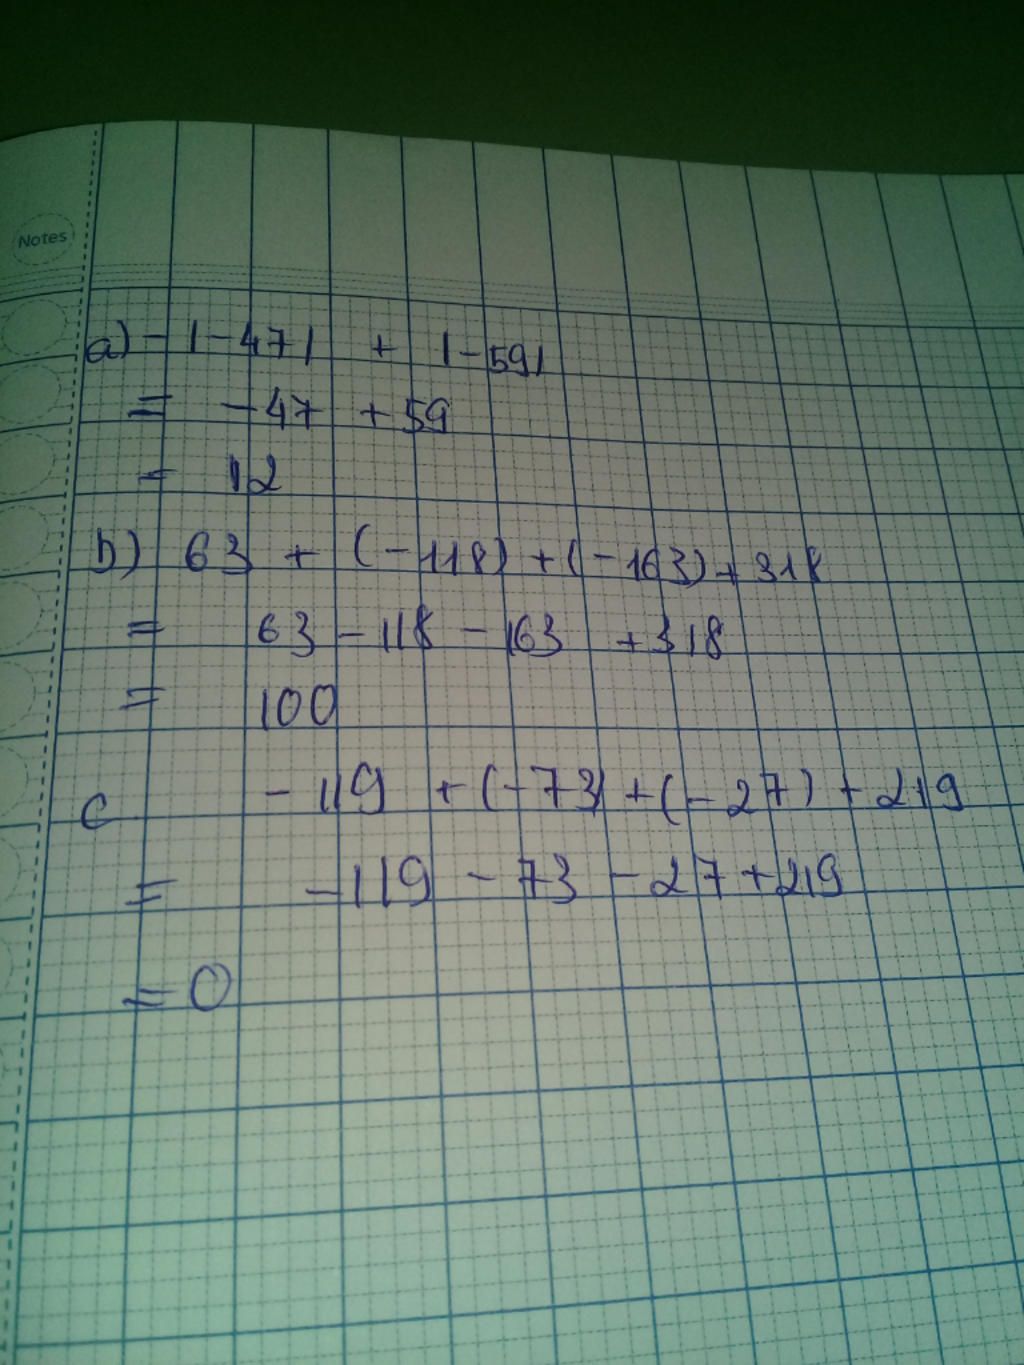 Notes
a) - |-47| + |-59|
= -47 + 59
= 12
b) 63 + (-118) + (-163) + 318
= 63 - 118 - 163 + 318
= 100
c - 119 + (-73) + (-27) + 219
= -119 - 73 - 27 + 219
= 0